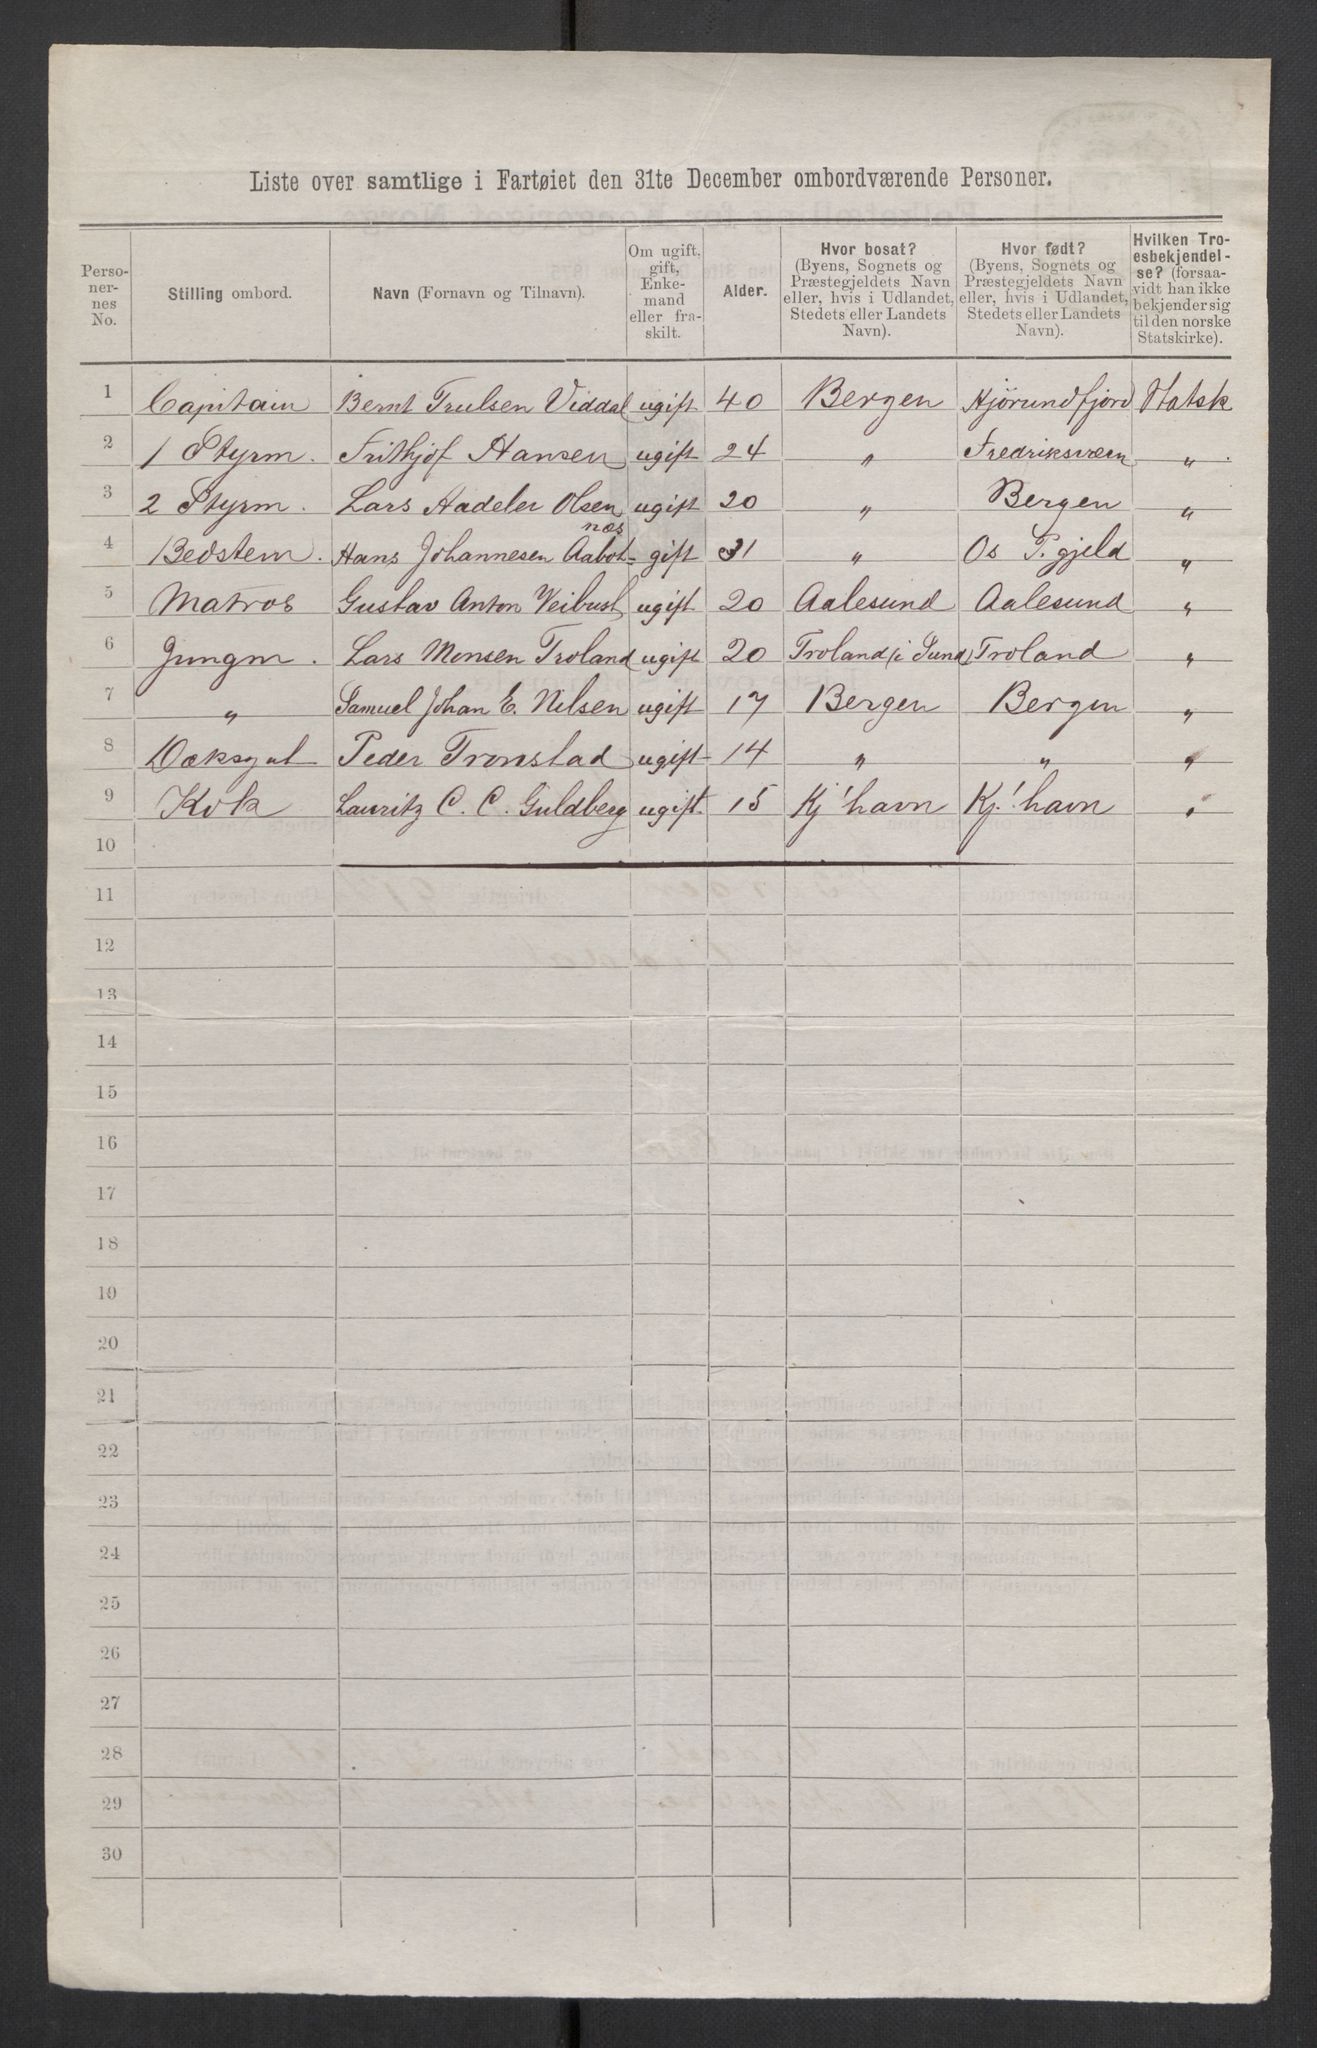 Liste over samtlige i Fartøiet den 31te December ombordværende Personer.
Perso-
ner-
nes
No.
Stilling ombord.
Navn (Fornavn og Tilnavn).
Om ugift,
gift,
Enke-
mand
eller fra-
skilt.
Alder.
Hvor bosat?
(Byens, Sognets og
Præstegjeldets Navn
eller, hvis i Udlandet,
Stedets eller Landets
Navn).
Hvor født?
(Byens, Sognets og
Præstegjeldets Navn
eller, hvis i Udlandet,
Stedets eller Landets
Navn).
Hvilken Tro-
esbekjendel-
se? (forsaa-
vidt han ikke
bekjender sig
til den norske
Statskirke).
1 Capitain Bernt Trulsen Viddal ugift 40 Bergen Hjörundfjord Statsk
2 1 Styrm. Frithjof Hansen ugift 24 " Fredriksværn "
3 2 Styrm. Lars Aadeler Olsen ugift 20 " Bergen "
næs
4 Bedstem. Hans Johannesen Aabot- gift 31 " Os P.gjeld "
5 Matros Gustav Anton Veibust ugift 20 Aalesund Aalesund "
6 Jungm. Lars Monsen Troland ugift 20 Troland (i Sund) Troland "
7 " Samuel Johan E. Nilsen ugift 17 Bergen Bergen "
8 Dæksgut Peder Tronstad ugift 14 " " "
9 Kok Lauritz C. C. Guldberg ugift. 15 Kj!havn Kj.!havn "
10
11
12
13
14
15
16
17
18
19
20
21
22
23
24
25
26
27
28
29
30